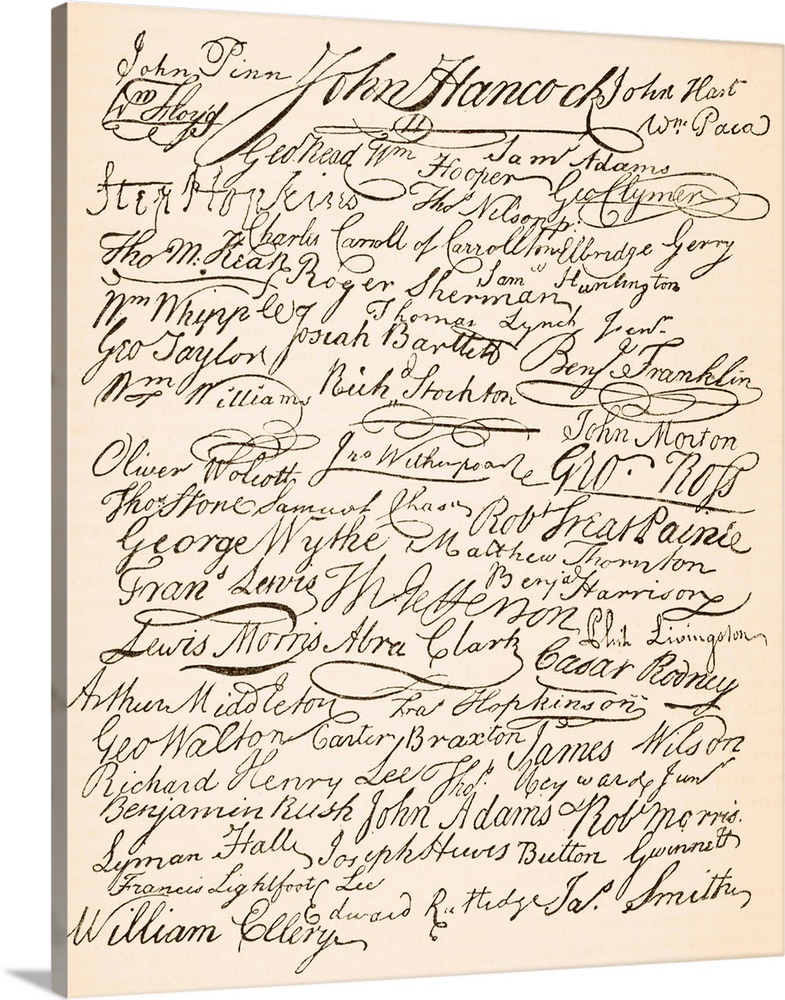 John Pinn John Hancock John Hart
Wm Floyd Wm. Paca
Geo Read Wm Hooper Sam Adams
Step Hopkins Thos Nelson jr. Geo Clymer
Charles Carroll of Carrollton Elbridge Gerry
Tho M. Kean Roger Sherman Sam Huntington
Wm Whipple Josiah Bartlett Thomas Lynch Junr.
Geo Taylor Benj Franklin
Wm Williams Rich Stockton
John Morton
Oliver Wolcott Jno Witherspoon Geo. Ross
Thos Stone Samuel Chase Robt Treat Paine
George Wythe Matthew Thornton
Frans Lewis Th Jefferson Benj Harrison
Lewis Morris Abra Clark Phil Livingston
Cæsar Rodney
Arthur Middleton Fras Hopkinson
Geo Walton Carter Braxton James Wilson
Richard Henry Lee Thos. Heyward Junr
Benjamin Rush John Adams Robt Morris.
Lyman Hall Joseph Hewes Button Gwinnett
Francis Lightfoot Lee
William Ellery Edward Rutledge Jas. Smith